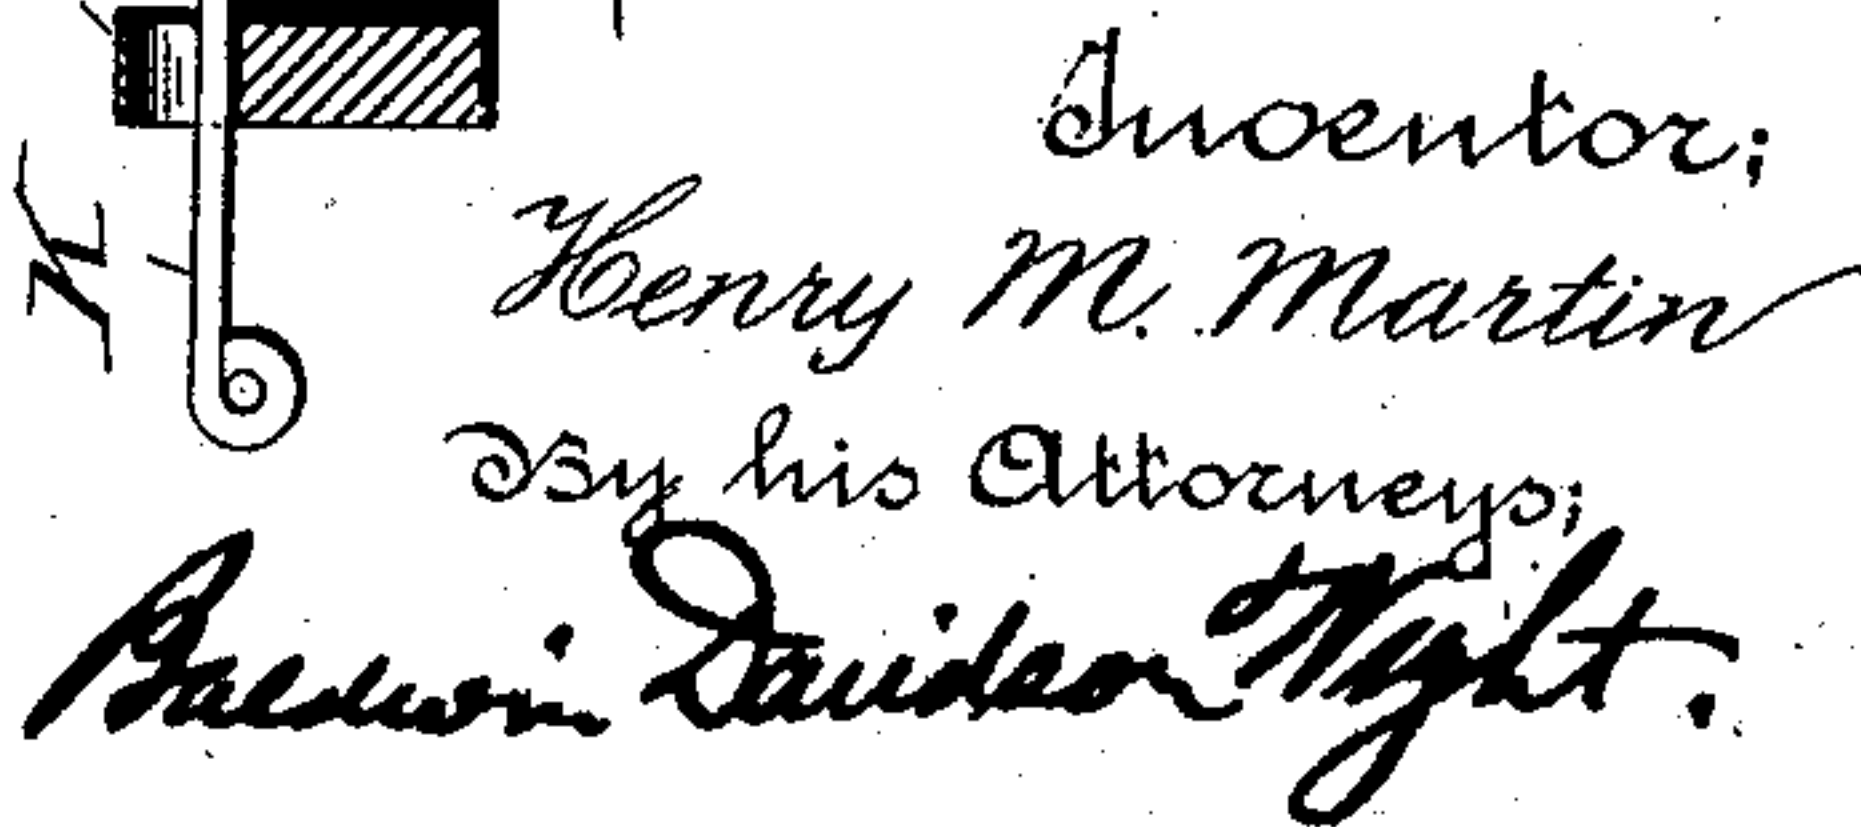 Inventor;
Henry M. Martin
By his Attorneys;
Baldwin Davidson Wight.